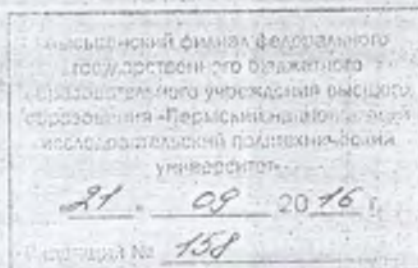 Лысьвенский филиал федерального
государственного бюджетного
образовательного учреждения высшего
образования «Пермский национальный
исследовательский политехнический
университет»
21 09 2016 г.
№ 158